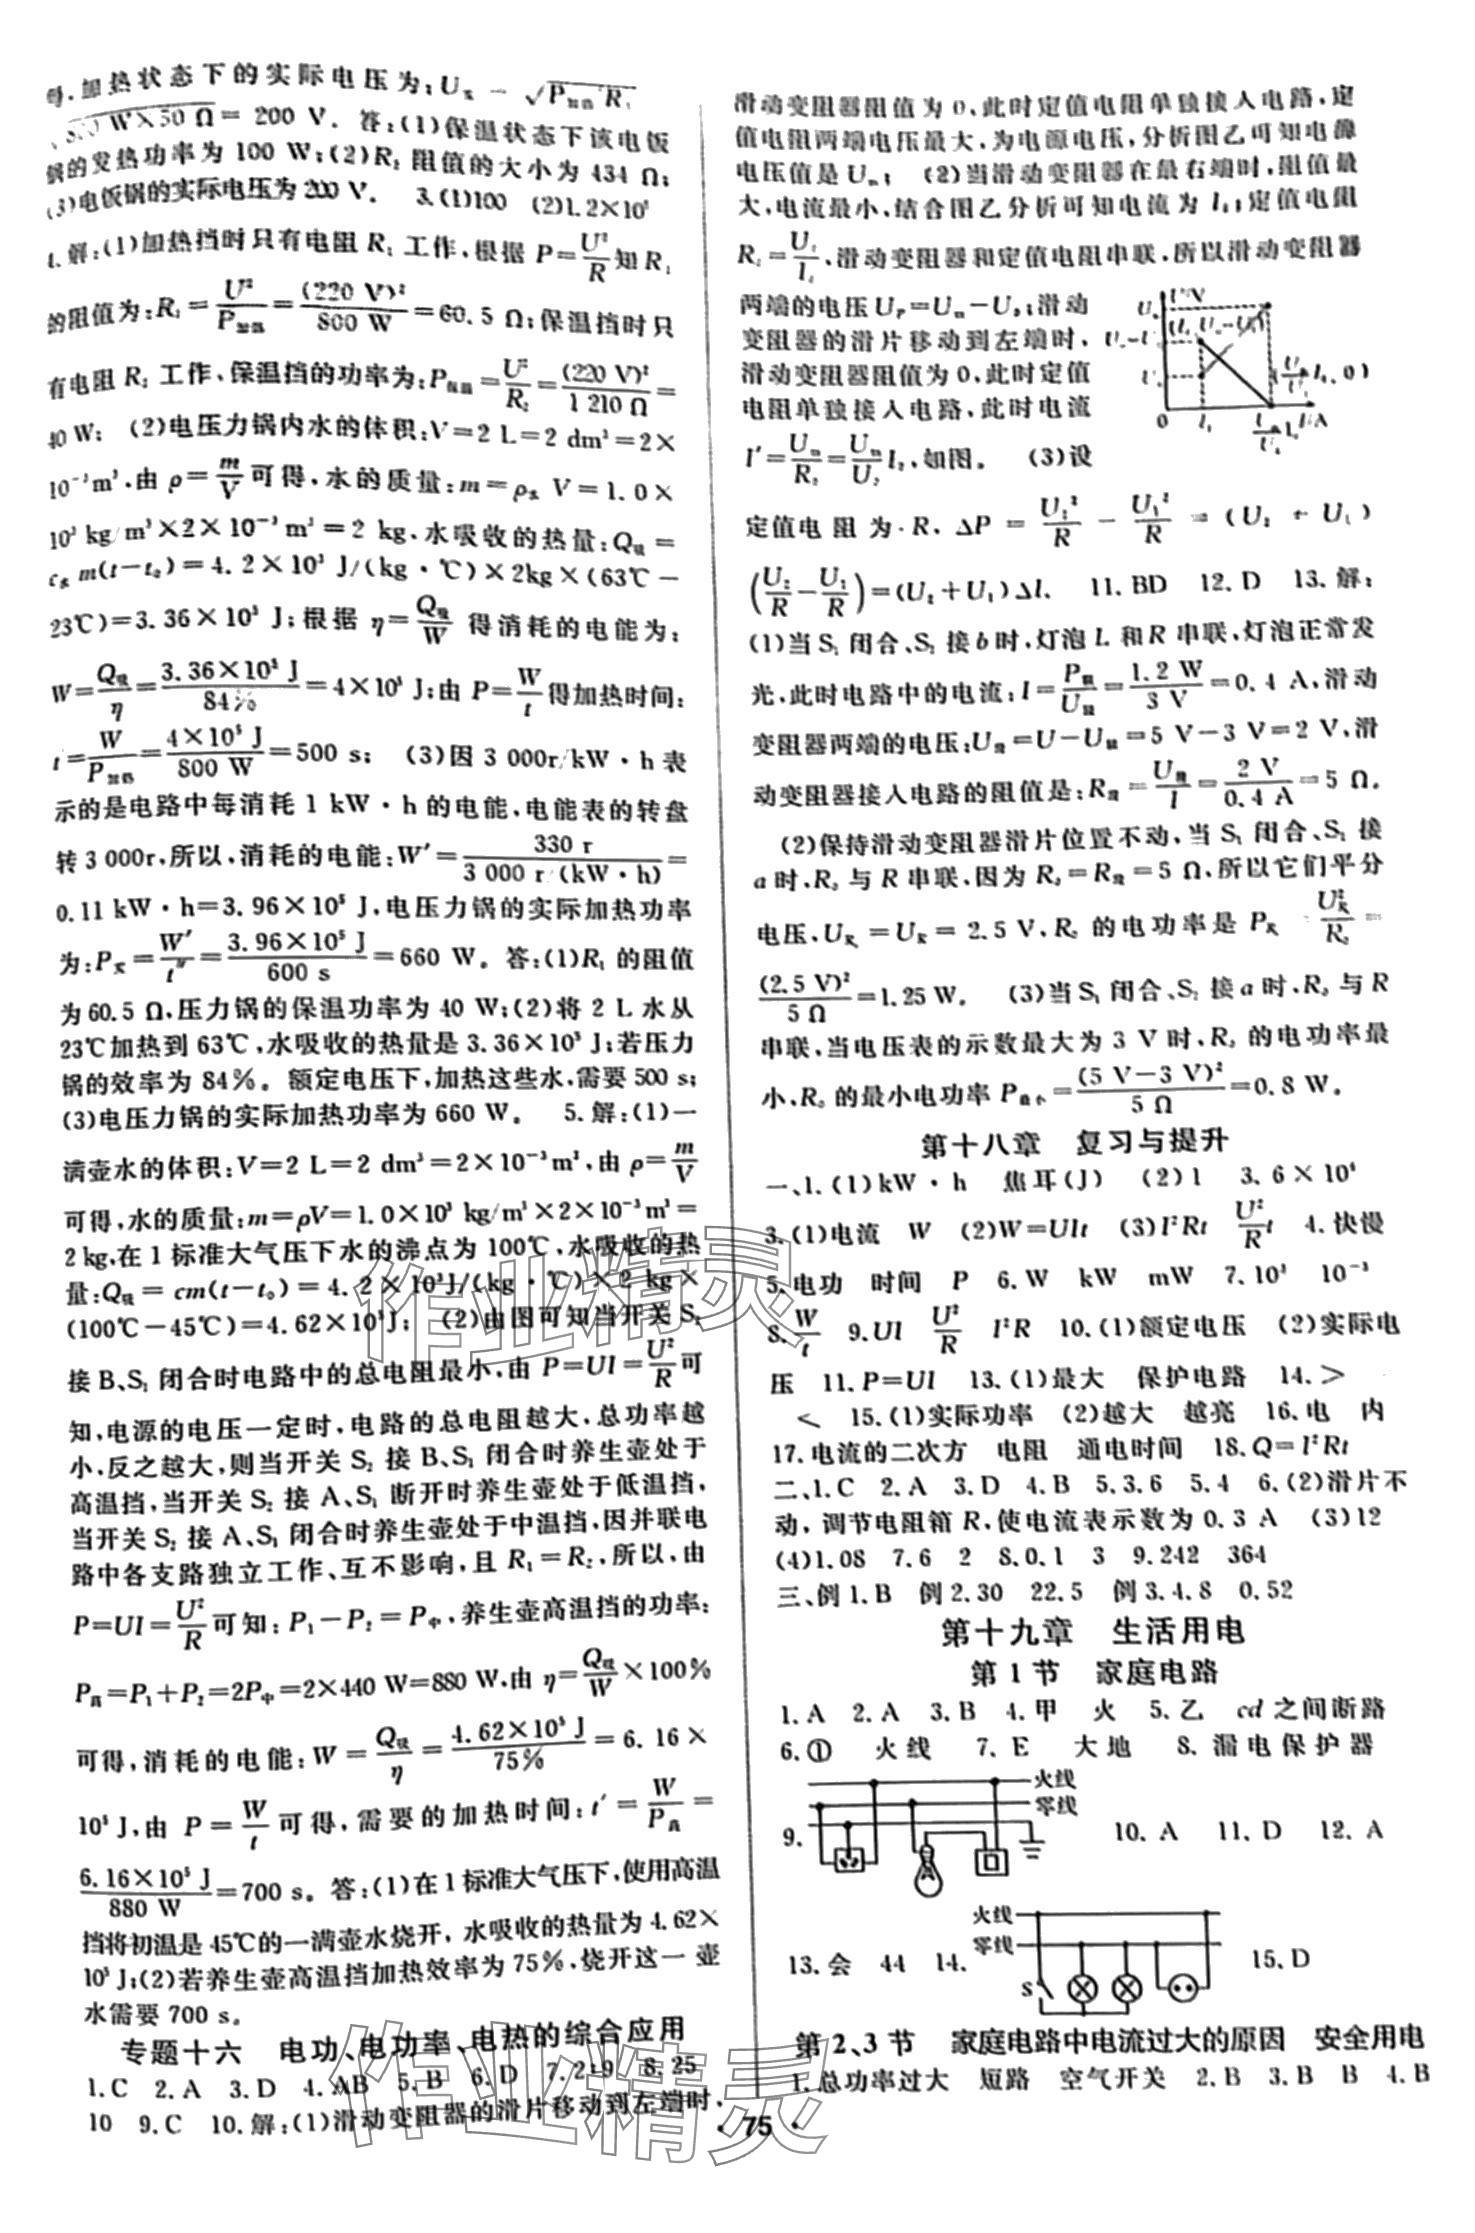 得:加热状态下的实际电压为:U实=√P加热R1
=√800 W×50 Ω=200 V。答:(1)保温状态下该电饭
锅的发热功率为100 W;(2)R2阻值的大小为434 Ω;
(3)电饭锅的实际电压为200 V。 3.(1)100 (2)1.2×10⁵
4.解:(1)加热挡时只有电阻R1工作,根据P=U²/R知R1
的阻值为:R1=U²/P加热=(220 V)²/800 W=60.5 Ω;保温挡时只
有电阻R2工作,保温挡的功率为:P保温=U²/R2=(220 V)²/1 210 Ω=
40 W; (2)电压力锅内水的体积:V=2 L=2 dm³=2×
10⁻³m³,由ρ=m/V可得,水的质量:m=ρ水V=1.0×
10³ kg/m³×2×10⁻³m³=2 kg,水吸收的热量:Q吸=
c水m(t-t0)=4.2×10³ J/(kg·℃)×2kg×(63℃-
23℃)=3.36×10⁵ J;根据η=Q吸/W得消耗的电能为:
W=Q吸/η=3.36×10⁵ J/84%=4×10⁵ J;由P=W/t得加热时间:
t=W/P加热=4×10⁵ J/800 W=500 s; (3)因3 000r/kW·h表
示的是电路中每消耗1 kW·h的电能,电能表的转盘
转3 000r,所以,消耗的电能:W′=330 r/3 000 r/(kW·h)=
0.11 kW·h=3.96×10⁵ J,电压力锅的实际加热功率
为:P实=W′/t″=3.96×10⁵ J/600 s=660 W。答:(1)R1的阻值
为60.5 Ω,压力锅的保温功率为40 W;(2)将2 L水从
23℃加热到63℃,水吸收的热量是3.36×10⁵ J;若压力
锅的效率为84%。额定电压下,加热这些水,需要500 s;
(3)电压力锅的实际加热功率为660 W。 5.解:(1)一
满壶水的体积:V=2 L=2 dm³=2×10⁻³m³,由ρ=m/V
可得,水的质量:m=ρV=1.0×10³ kg/m³×2×10⁻³m³=
2 kg,在1标准大气压下水的沸点为100℃,水吸收的热
量:Q吸=cm(t-t0)=4.2×10³J/(kg·℃)×2 kg×
(100℃-45℃)=4.62×10⁵J; (2)由图可知当开关S2
接B、S1闭合时电路中的总电阻最小,由P=UI=U²/R可
知,电源的电压一定时,电路的总电阻越大,总功率越
小,反之越大,则当开关S2接B、S1闭合时养生壶处于
高温挡,当开关S2接A、S1断开时养生壶处于低温挡,
当开关S2接A、S1闭合时养生壶处于中温挡,因并联电
路中各支路独立工作、互不影响,且R1=R2,所以,由
P=UI=U²/R可知:P1=P2=P中,养生壶高温挡的功率:
P高=P1+P2=2P中=2×440 W=880 W,由η=Q吸/W×100%
可得,消耗的电能:W=Q吸/η=4.62×10⁵ J/75%=6.16×
10⁵ J,由P=W/t可得,需要的加热时间:t′=W/P高=
6.16×10⁵ J/880 W=700 s。答:(1)在1标准大气压下,使用高温
挡将初温是45℃的一满壶水烧开,水吸收的热量为4.62×
10⁵ J;(2)若养生壶高温挡加热效率为75%,烧开这一壶
水需要700 s。
专题十六 电功、电功率、电热的综合应用
1.C 2.A 3.D 4.AB 5.B 6.D 7.2:9 8.25
10 9.C 10.解:(1)滑动变阻器的滑片移动到左端时,
滑动变阻器阻值为0,此时定值电阻单独接入电路,定
值电阻两端电压最大,为电源电压,分析图乙可知电源
电压值是Um; (2)当滑动变阻器在最右端时,阻值最
大,电流最小,结合图乙分析可知电流为I1;定值电阻
滑动变阻器和定值电阻串联,所以滑动变阻器
两端的电压UP=Um-U0;滑动
变阻器的滑片移动到左端时,
滑动变阻器阻值为0,此时定值
电阻单独接入电路,此时电流
如图。 (3)设
定值电阻为R,ΔP=U2²/R-U1²/R=(U2+U1)
(U2/R-U1/R)=(U2+U1)ΔI. 11.BD 12.D 13.解:
(1)当S1闭合、S2接b时,灯泡L和R串联,灯泡正常发
光,此时电路中的电流:I=P额/U额=1.2 W/3 V=0.4 A,滑动
变阻器两端的电压:U滑=U-U额=5 V-3 V=2 V,滑
动变阻器接入电路的阻值是:R滑=U滑/I=2 V/0.4 A=5 Ω。
(2)保持滑动变阻器滑片位置不动,当S1闭合、S2接
a时,R0与R串联,因为R0=R滑=5 Ω,所以它们平分
电压,U实=U实=2.5 V,R0的电功率是P实=U实²/R0=
(2.5 V)²/5 Ω=1.25 W。 (3)当S1闭合、S2接a时,R0与R
串联,当电压表的示数最大为3 V时,R0的电功率最
小、R0的最小电功率P最小=(5 V-3 V)²/5 Ω=0.8 W。
第十八章 复习与提升
一、1.(1)kW·h 焦耳(J) (2)1 3.6×10⁶
3.(1)电流 W (2)W=UIt (3)I²Rt U²/R t 4.快慢
5.电功 时间 P 6.W kW mW 7.10³ 10⁻³
8.W/t 9.UI U²/R I²R 10.(1)额定电压 (2)实际电
压 11.P=UI 13.(1)最大 保护电路 14.>
< 15.(1)实际功率 (2)越大 越亮 16.电 内
17.电流的二次方 电阻 通电时间 18.Q=I²Rt
二、1.C 2.A 3.D 4.B 5.3.6 5.4 6.(2)滑片不
动,调节电阻箱R,使电流表示数为0.3 A (3)12
(4)1.08 7.6 2 8.0.1 3 9.242 364
三、例1.B 例2.30 22.5 例3.4.8 0.52
第十九章 生活用电
第1节 家庭电路
1.A 2.A 3.B 4.甲 火 5.乙 cd之间断路
6.① 火线 7.E 大地 8.漏电保护器
火线
零线
9. 10.A 11.D 12.A
火线
零线
S
13.会 44 14. 15.D
第2、3节 家庭电路中电流过大的原因 安全用电
1.总功率过大 短路 空气开关 2.B 3.B B 4.B
·75·
作业精灵
作业精灵